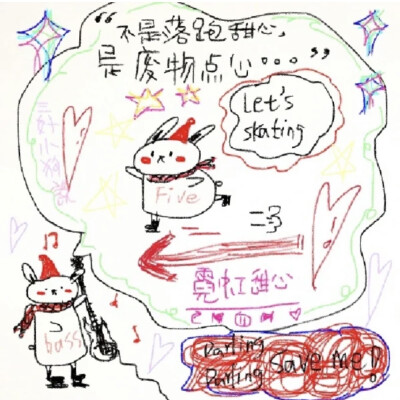 “不是落跑甜心,
是废物点心。。。”
Let's
skating
三好小狗
Five
霓虹甜心
bass
Darling
Darling
save me!